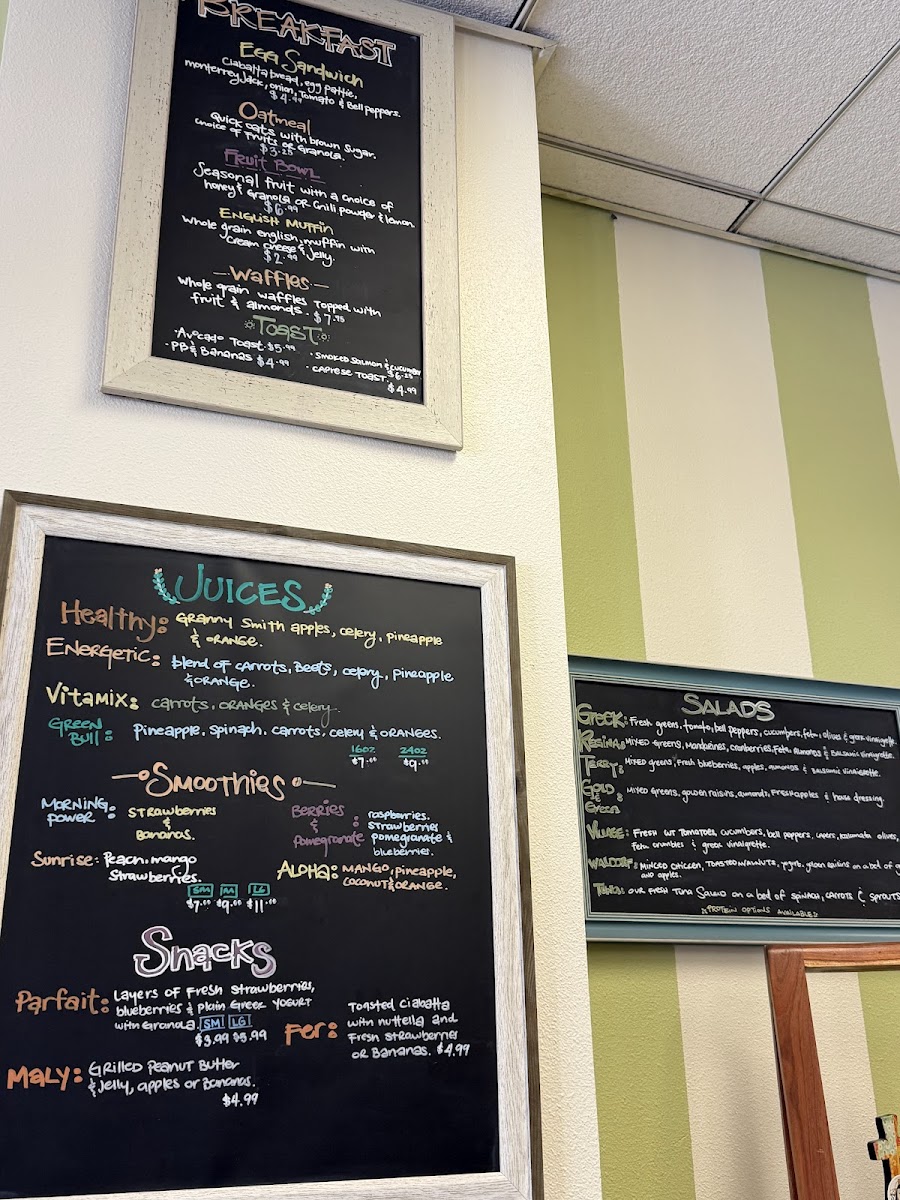 BREAKFAST
Egg Sandwich
Ciabatta bread, egg pattie,
monterrey Jack, onion, Tomato & Bell peppers.
$4.99
Oatmeal
Quick oats with brown sugar.
choice of Fruits or Granola.
$3.25
Fruit Bowl
Seasonal fruit with a choice of
honey & Granola OR Chili powder & lemon
$6.99
ENGLISH MUFFIN
Whole grain english muffin with
cream cheese & jelly.
$2.99
Waffles
Whole grain waffles Topped with
fruit & almonds. $7.75
TOAST
• Avocado Toast $5.99
• PB & Bananas $4.99
• SMOKED SALMON & CUCUMBER
$6.25
• CAPRESE TOAST.
$4.99
JUICES
Healthy: Granny Smith apples, celery, pineapple
& ORANGE.
ENERGETIC: blend of carrots, Beets, celery, pineapple
& ORANGE.
VITAMIX: carrots, ORANGES & celery.
GREEN BULL: Pineapple, spinach, carrots, celery & ORANGES.
16oz 24oz
$7.00 $9.00
Smoothies
MORNING POWER: STRAWBERRIES
&
BANANAS.
BERRIES
&
Pomegranate: raspberries.
strawberries
pomegranate &
blueberries.
Sunrise: Peach, mango
Strawberries.
ALOHA: MANGO, pineapple,
COCONUT & ORANGE.
SM LG
$7.00 $9.00 $11.00
Snacks
Parfait: Layers of Fresh strawberries,
blueberries & plain Greek YOGURT
with Granola. SM LG
$3.99 $5.99
Fer: Toasted Ciabatta
with nuttella and
Fresh strawberries
OR Bananas. $4.99
MALY: GRILLED Peanut Butter
& Jelly, apples or Bananas.
$4.99
SALADS
Greek: Fresh greens, tomato, bell peppers, cucumbers, feta, olives & greek vinaigrette.
Regina: MIXED Greens, Mandarines, cranberries, Feta almonds & Balsamic Vinaigrette.
Terry: MIXED greens, Fresh blueberries, apples, almonds & Balsamic Vinaigrette.
GOLD & GREEN: MIXED Greens, golden raisins, almonds, Fresh apples & house dressing.
VILLAGE: FRESH CUT TOMATOES, cucumbers, bell peppers, capers, kalamata olives,
Feta crumbles & greek vinaigrette.
WALDORF: MINCED CHICKEN, TOASTED WALNUTS, yogurt, golden raisins on a bed of
and apples.
OUR FRESH Tuna SALAD on a bed of SPINACH, CARROTS & SPROUTS
PROTEIN OPTIONS AVAILABLE